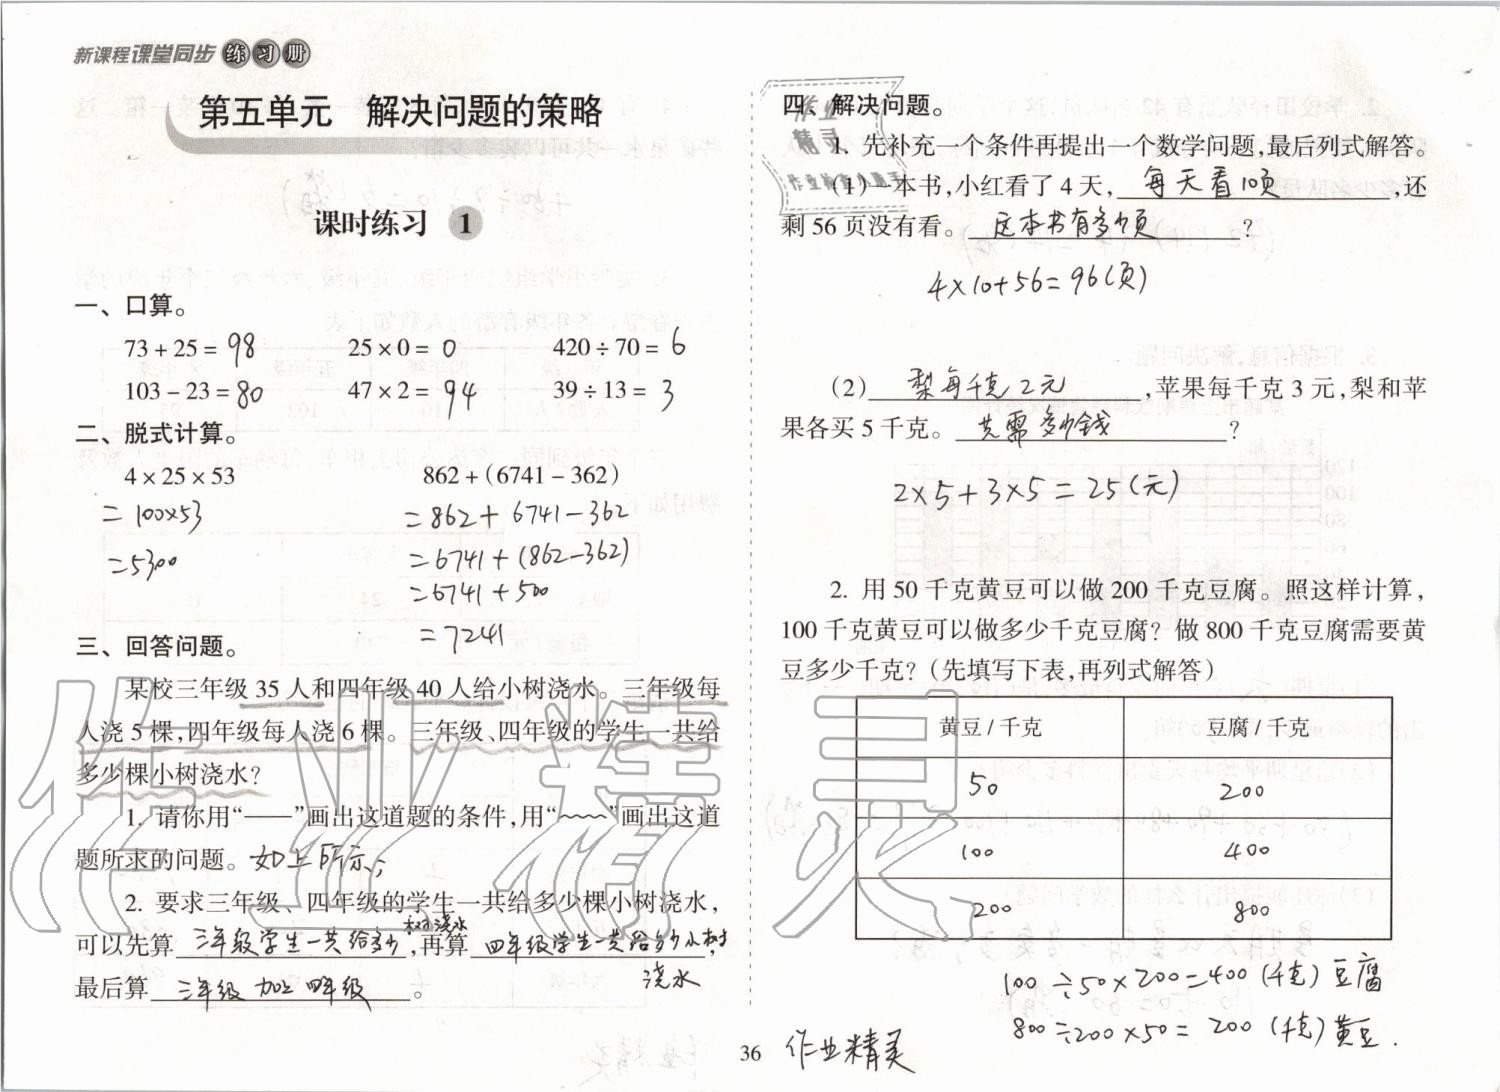 新课程课堂同步练习册
第五单元　解决问题的策略
课时练习 1
一、口算。
73+25= 98　25×0= 0　420÷70= 6
103-23= 80　47×2= 94　39÷13= 3
二、脱式计算。
4×25×53　862+(6741-362)
= 100×53　=862+6741-362
=5300　=6741+(862-362)
=6741+500
=7241
三、回答问题。
某校三年级35人和四年级40人给小树浇水。三年级每
人浇5棵,四年级每人浇6棵。三年级、四年级的学生一共给
多少棵小树浇水?
1. 请你用“——”画出这道题的条件,用“~~~~”画出这道
题所求的问题。如上所示;
2. 要求三年级、四年级的学生一共给多少棵小树浇水,
可以先算 三年级学生一共给多少树浇水,再算 四年级学生一共给多少小树浇水,
最后算 三年级加上四年级。
四、解决问题。
1. 先补充一个条件再提出一个数学问题,最后列式解答。
(1)一本书,小红看了4天, 每天看10页,还
剩56页没有看。 这本书有多少页?
4×10+56=96(页)
(2) 梨每千克2元,苹果每千克3元,梨和苹
果各买5千克。 共需多少钱?
2×5+3×5=25(元)
2. 用50千克黄豆可以做200千克豆腐。照这样计算,
100千克黄豆可以做多少千克豆腐?做800千克豆腐需要黄
豆多少千克?(先填写下表,再列式解答)
黄豆/千克　豆腐/千克
50　200
100　400
200　800
100÷50×200=400(千克)豆腐
800÷200×50=200(千克)黄豆.
36
作业精灵
作业
精灵
作业检查小助手
作业精灵